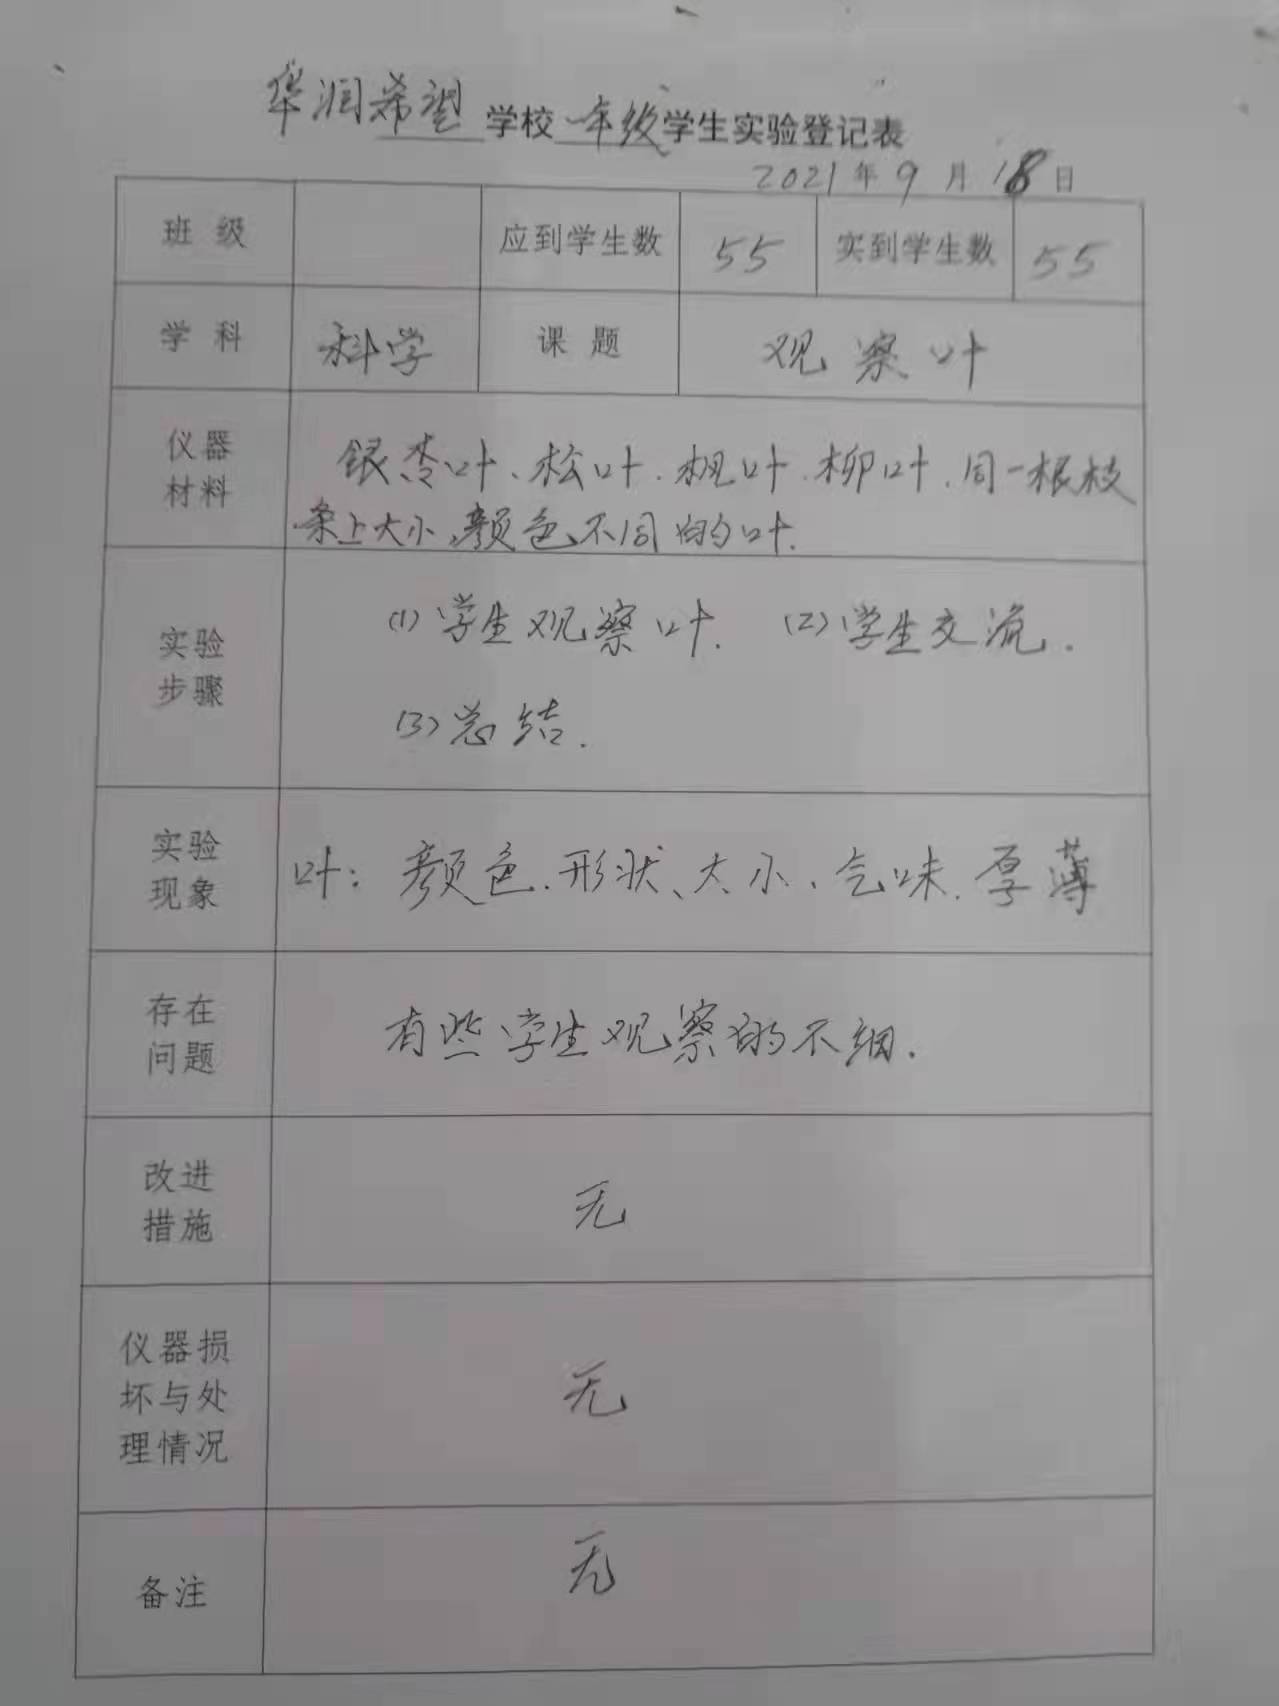 华润希望学校一年级学生实验登记表
2021年9月18日
班级 应到学生数 55 实到学生数 55
学科 科学 课题 观察叶
仪器
材料
银杏叶、松叶、枫叶、柳叶、同一根枝
条上大小、颜色不同的叶.
实验
步骤
(1)学生观察叶. (2)学生交流.
(3)总结.
实验
现象
叶：颜色、形状、大小、气味、厚薄
存在
问题
有些学生观察的不细.
改进
措施
无
仪器损
坏与处
理情况
无
备注
无